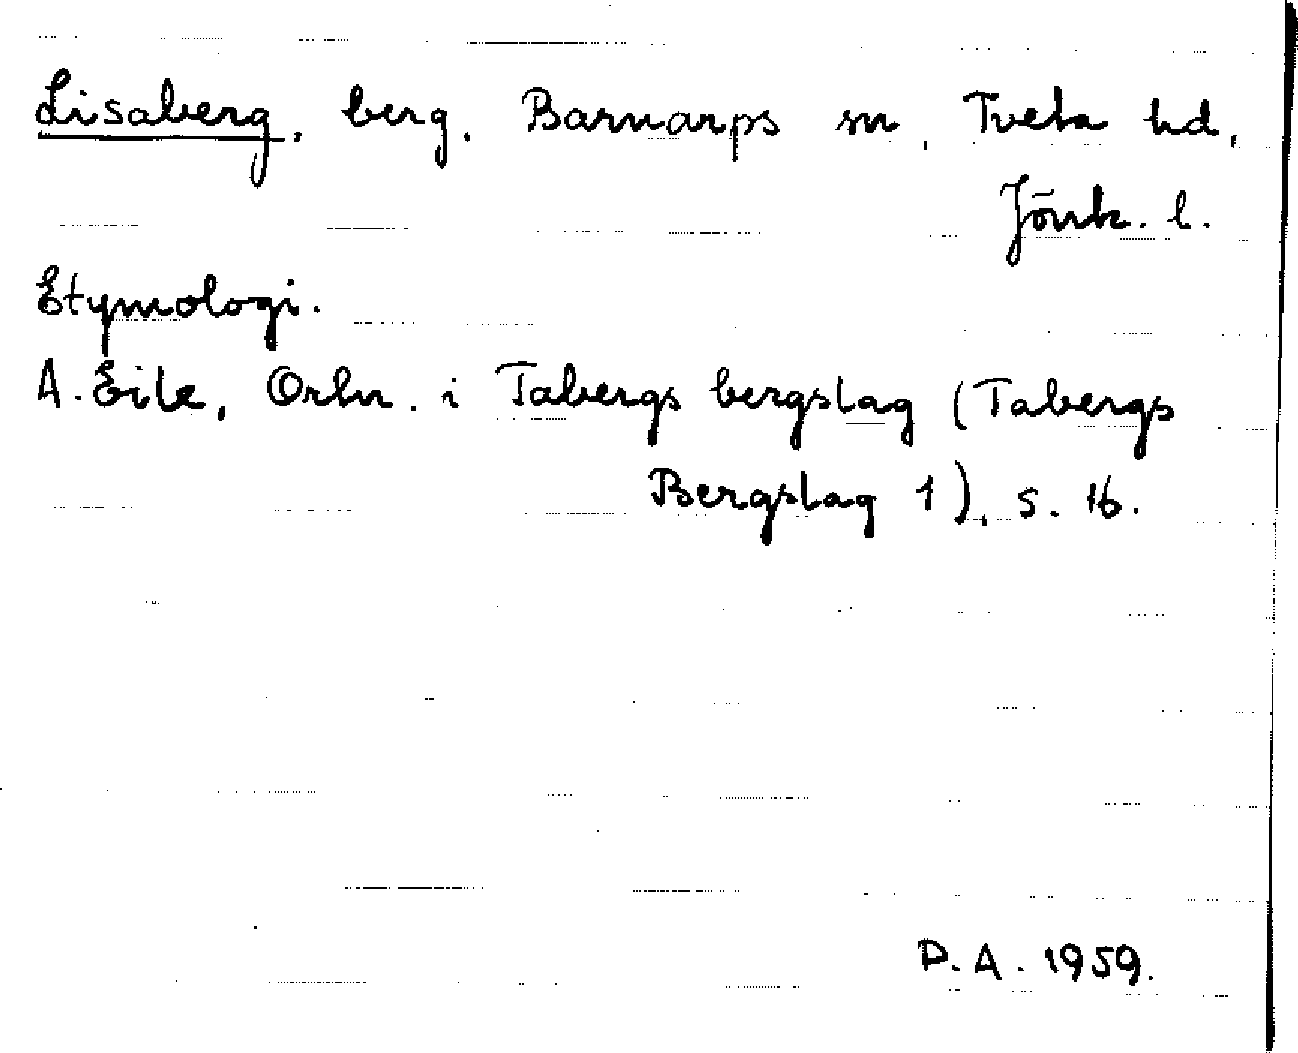 Lisaberg, berg, Barnarps sn, Tveta hd,
Jönk. l.
Etymologi.
A. Eile, Ortn. i Tabergs bergslag (Tabergs
Bergslag 1), s. 16.
P.A. 1959.